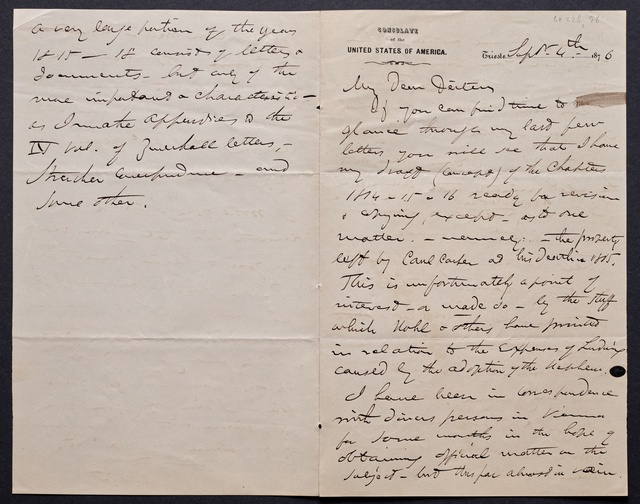 CONSULATE
of the
UNITED STATES OF AMERICA.
Trieste Sept. 4th 1876
My Dear Deiters
If you can find time to
glance through my last few
letters you will see that I have
my draft (concept) of the Chapters
1814 - 15 - 16 ready for revision
& copying, except - as to one
matter. - namely: - the property
left by Carl Caspar at his death in 1815.
This is unfortunately a point of
interest - or made so - by the stuff
which Nohl & others have printed
in relation to the Expenses of Ludwig
caused by the adoption of the nephew.
I have been in correspondence
with divers persons in Vienna
for some months in the hope of
obtaining official matter on the
subject - but thus far almost in vain.
a very large portion of the years
1815 - 18 consist of letters &
documents - but only of the
more important & characteristic -
as I make Appendices to the
IV Vol. of Zmeskall letters, -
Streicher correspondence - and
some other.